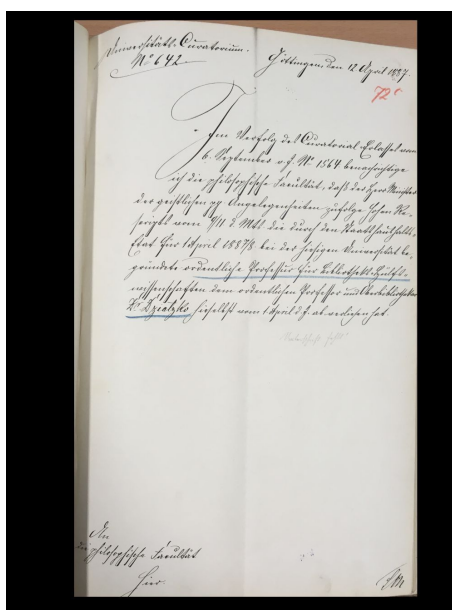 Universitäts-Curatorium.
No 642.
Göttingen, den 12 April 1887.
72
Im Verfolg des Curatorial-Erlasses vom
6. September v. J. No 1564 benachrichtige
ich die philosophische Facultät, daß der Herr Minister
der geistlichen pp Angelegenheiten zufolge hohen Re-
scripts vom 9/11 d. Mts die durch den Staatshaushalts-
Etat für 1 April 1887/8 bei der hiesigen Universität be-
gründete ordentliche Professur für Bibliotheks-Hülfs-
wissenschaften dem ordentlichen Professor und Oberbibliothekar
Dr Dziatzko hieselbst vom 1 April d. J. ab verliehen hat.
An
die philosophische Facultät
hier.